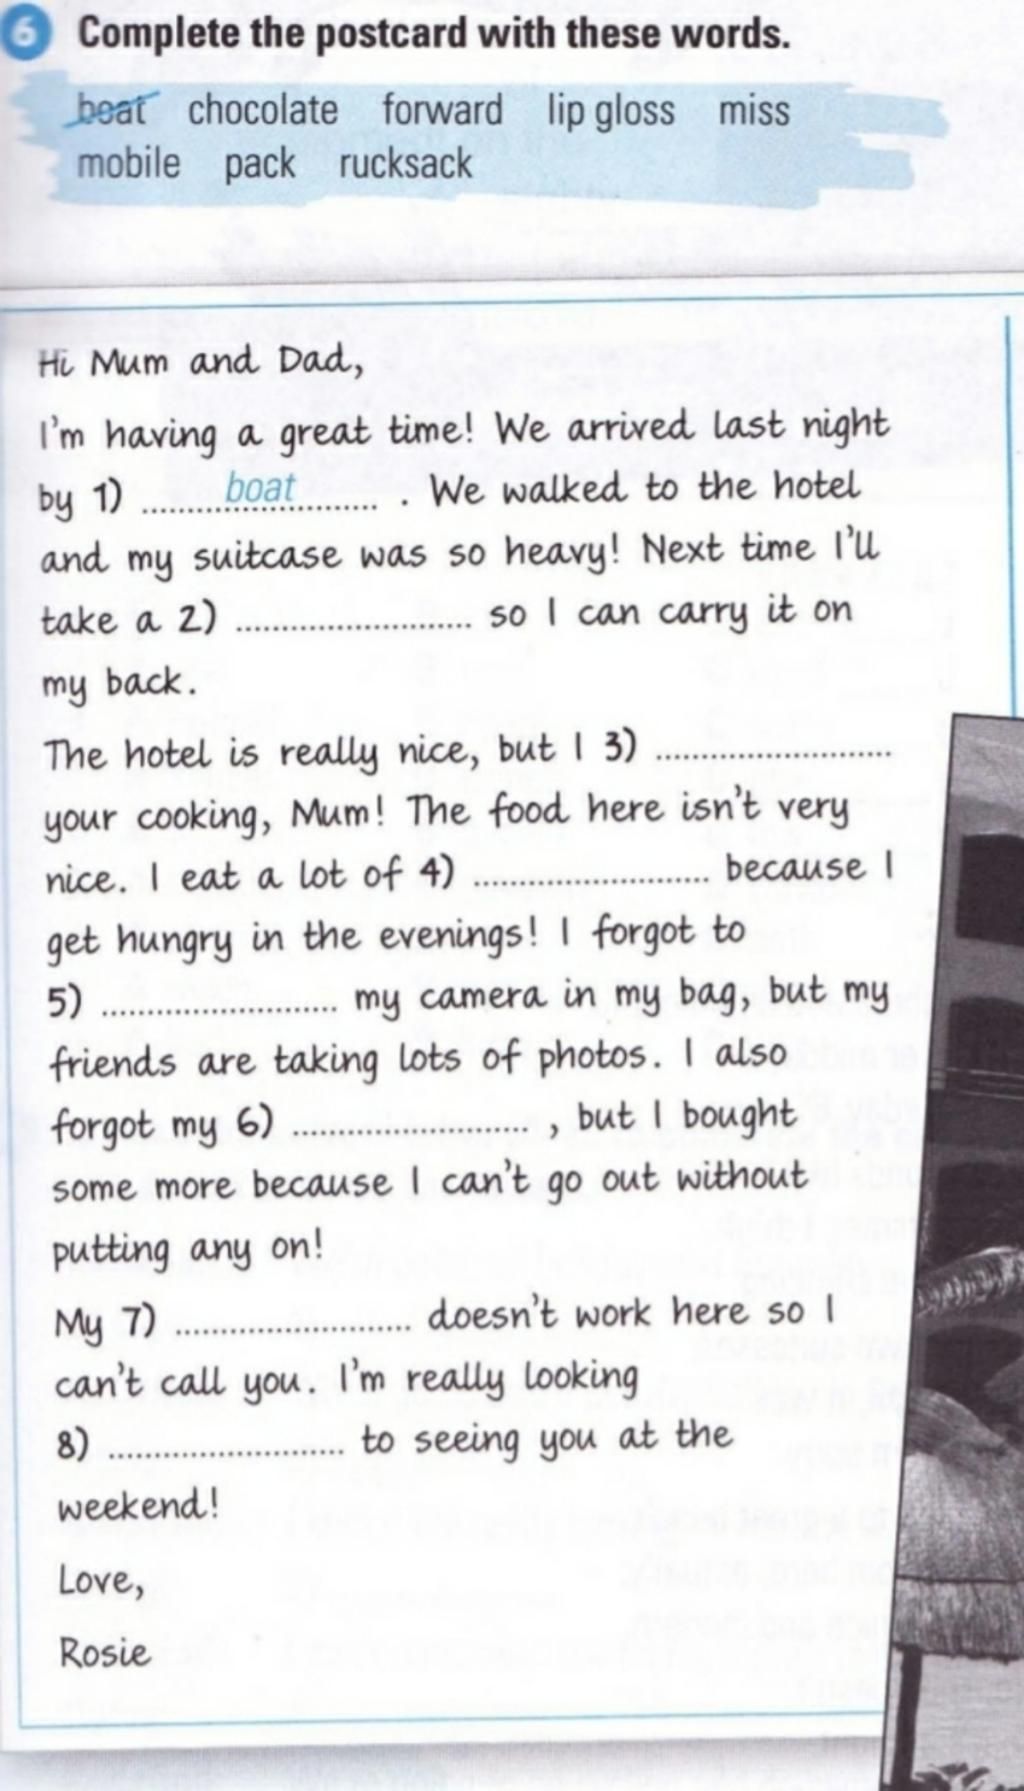 6 Complete the postcard with these words.
boat chocolate forward lip gloss miss
mobile pack rucksack
Hi Mum and Dad,
I'm having a great time! We arrived last night
by 1) boat . We walked to the hotel
and my suitcase was so heavy! Next time I'll
take a 2) ........................ so I can carry it on
my back.
The hotel is really nice, but I 3) ........................
your cooking, Mum! The food here isn't very
nice. I eat a lot of 4) ........................ because I
get hungry in the evenings! I forgot to
5) ........................ my camera in my bag, but my
friends are taking lots of photos. I also
forgot my 6) ........................ , but I bought
some more because I can't go out without
putting any on!
My 7) ........................ doesn't work here so I
can't call you. I'm really looking
8) ........................ to seeing you at the
weekend!
Love,
Rosie